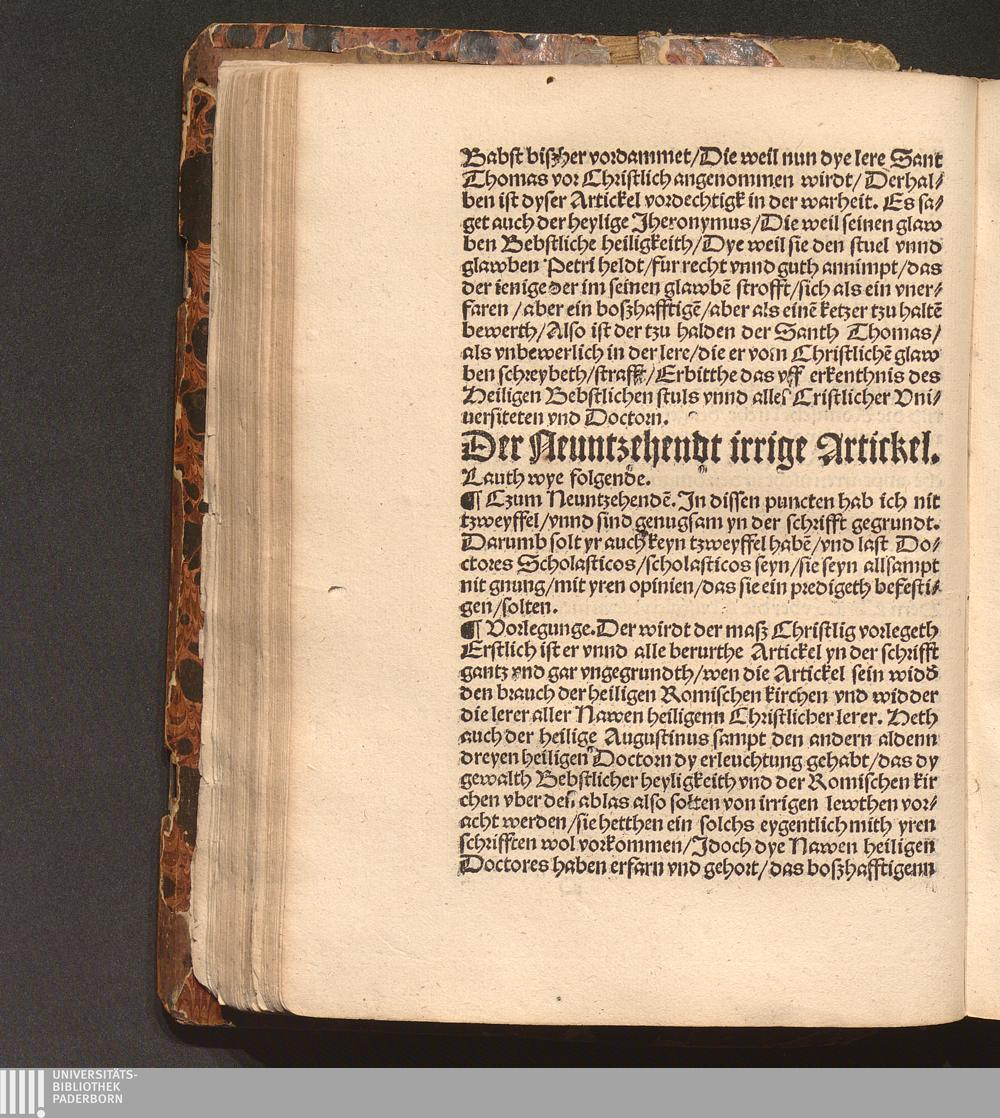 Babst biſzher vordammet/Die weil nun dye lere Sant
Thomas vor Chriſtlich angenommen wirdt/ Derhal⸗
ben iſt dyſer Artickel vordechtigk in der warheit. Es ſa⸗
get auch der heylige Jheronymus/Die weil ſeinen glaw
ben Bebſtliche heiligkeith/Dye weil ſie den ſtuel vnnd
glawben Petri heldt/fur recht vnnd guth annimpt/das
der ienige der im ſeinen glawbē ſtrofft/ſich als ein vner⸗
faren /aber ein boſzhafftigē/aber als einē ketzer tzu haltē
bewerth/Alſo iſt der tzu halden der Santh Thomas/
als vnbewerlich in der lere/die er vom Chriſtlichē glaw
ben ſchreybeth/ſtrafft/Erbitthe das vff erkenthnis des
Heiligen Bebſtlichen ſtuls vnnd aller Criſtlicher Vni⸗
uerſiteten vnd Doctorn.
Der Neuntzehendt irrige Artickel.
Lauth wye folgende.
¶ Czum Neuntzehendē. In diſſen puncten hab ich nit
tzweyffel/vnnd ſind genugſam yn der ſchrifft gegrundt.
Darumb ſolt yr auch keyn tzweyffel habē/vnd laſt Do⸗
ctores Scholaſticos/ſcholaſticos ſeyn/ſie ſeyn allſampt
nit gnung/mit yren opinien/das ſie ein predigeth befeſti⸗
gen/ſolten.
¶ Vorlegunge.Der wirdt der maſz Chriſtlig vorlegeth
Erſtlich iſt er vnnd alle berurthe Artickel yn der ſchrifft
gantz vnd gar vngegrundth/wen die Artickel ſein widd̕
den brauch der heiligen Romiſchen kirchen vnd widder
die lerer aller Nawen heiligenn Chriſtlicher lerer. Heth
auch der heilige Auguſtinus ſampt den andern aldenn
dreyen heiligen Doctorn dy erleuchtung gehabt/das dy
gewalth Bebſtlicher heyligkeith vnd der Romiſchen kir
chen vber den ablas alſo ſolten von irrigen lewthen vor⸗
acht werden/ſie hetthen ein ſolchs eygentlich mith yren
ſchrifften wol vorkommen/Jdoch dye Nawen heiligen
Doctores haben erfarn vnd gehort/das boſzhafftigenn
UNIVERSITÄTS-
BIBLIOTHEK
PADERBORN